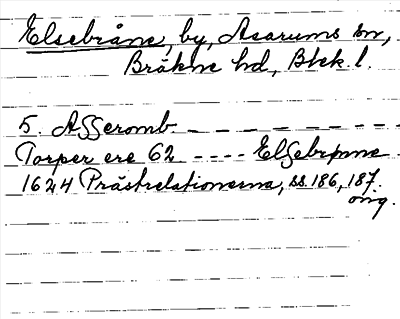 Elsebråne, by, Asarums sn,
Bräkne hd, Blek. l.
5. Asseromb. – – – – – – – –
Torper ere 62 - - - - Elsebrpnne
1624 Prästrelationerna, ss. 186, 187.
orig.